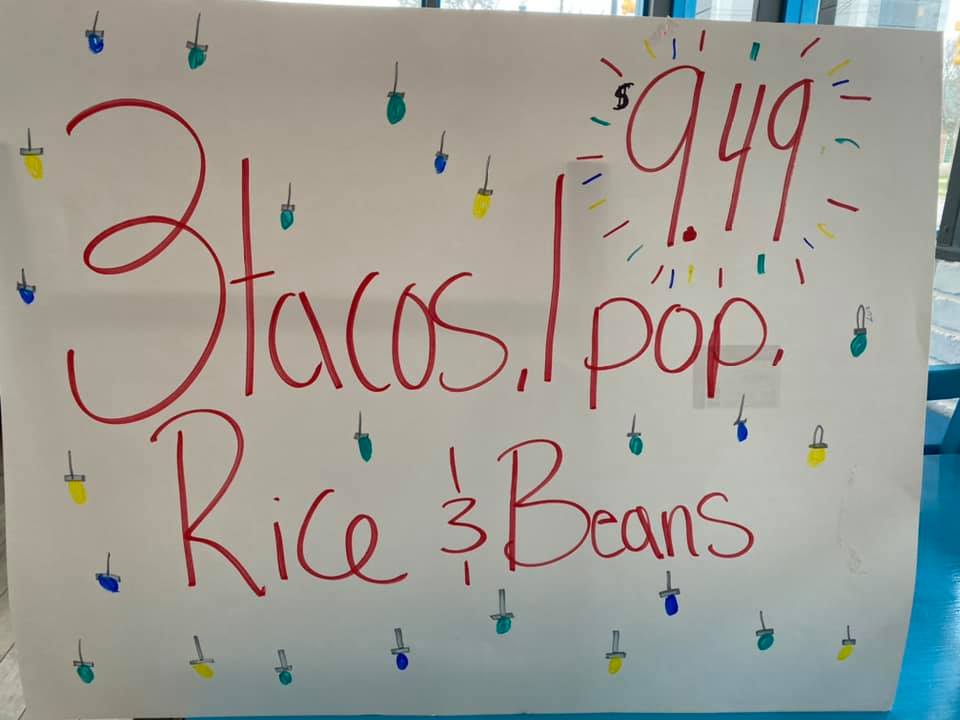 $9.49
3 tacos. 1 pop.
Rice & Beans